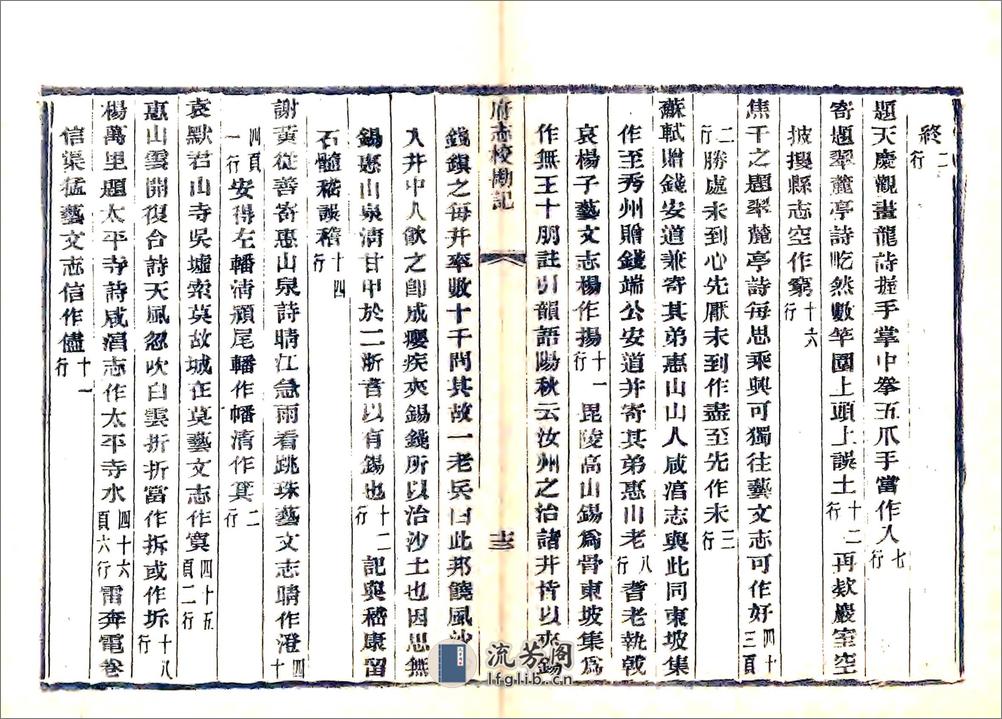 終二行
題天慶觀畫龍詩握手掌中拳五爪手當作入七行
寄題翠麓亭詩屹然數竿園上頭上誤土十二行再欸巖室空
披搜縣志空作窮十六行
焦千之題翠麓亭詩每思乘興可獨往藝文志可作好四十三頁
二行勝處未到心先厭未到作盡至先作未三行
蘇軾贈錢安道兼寄其弟惠山山人咸淳志與此同東坡集
作至秀州贈錢端公安道并寄其弟惠山老八行耆老執戟
哀楊子藝文志楊作揚十一行毘陵高山錫爲骨東坡集爲
作無王十朋註引韻語陽秋云汝州之治諸井皆以夾錫
府志校勘記
十三
錢鎮之每井率數十千問其故一老兵曰此邦饒風沙
入井中人飲之卽成癭疾夾錫錢所以治沙土也因思無
錫惠山泉清甘甲於二浙者以有錫也十二行記與嵇康留
石髓嵇誤稽十四行
謝黃從善寄惠山泉詩晴江急雨看跳珠藝文志晴作澄四十
四頁一行安得左轓清潁尾轓作幡清作箕二行
袁默君山寺吳墟索莫故城在莫藝文志作寞四十五頁二行
惠山雲開復合詩天風忽吹白雲折折當作拆或作坼十八行
楊萬里題太平寺詩咸淳志作太平寺水四十六頁六行雷奔電卷
信渠猛藝文志信作儘十一行
流芳阁
lfglib.cn